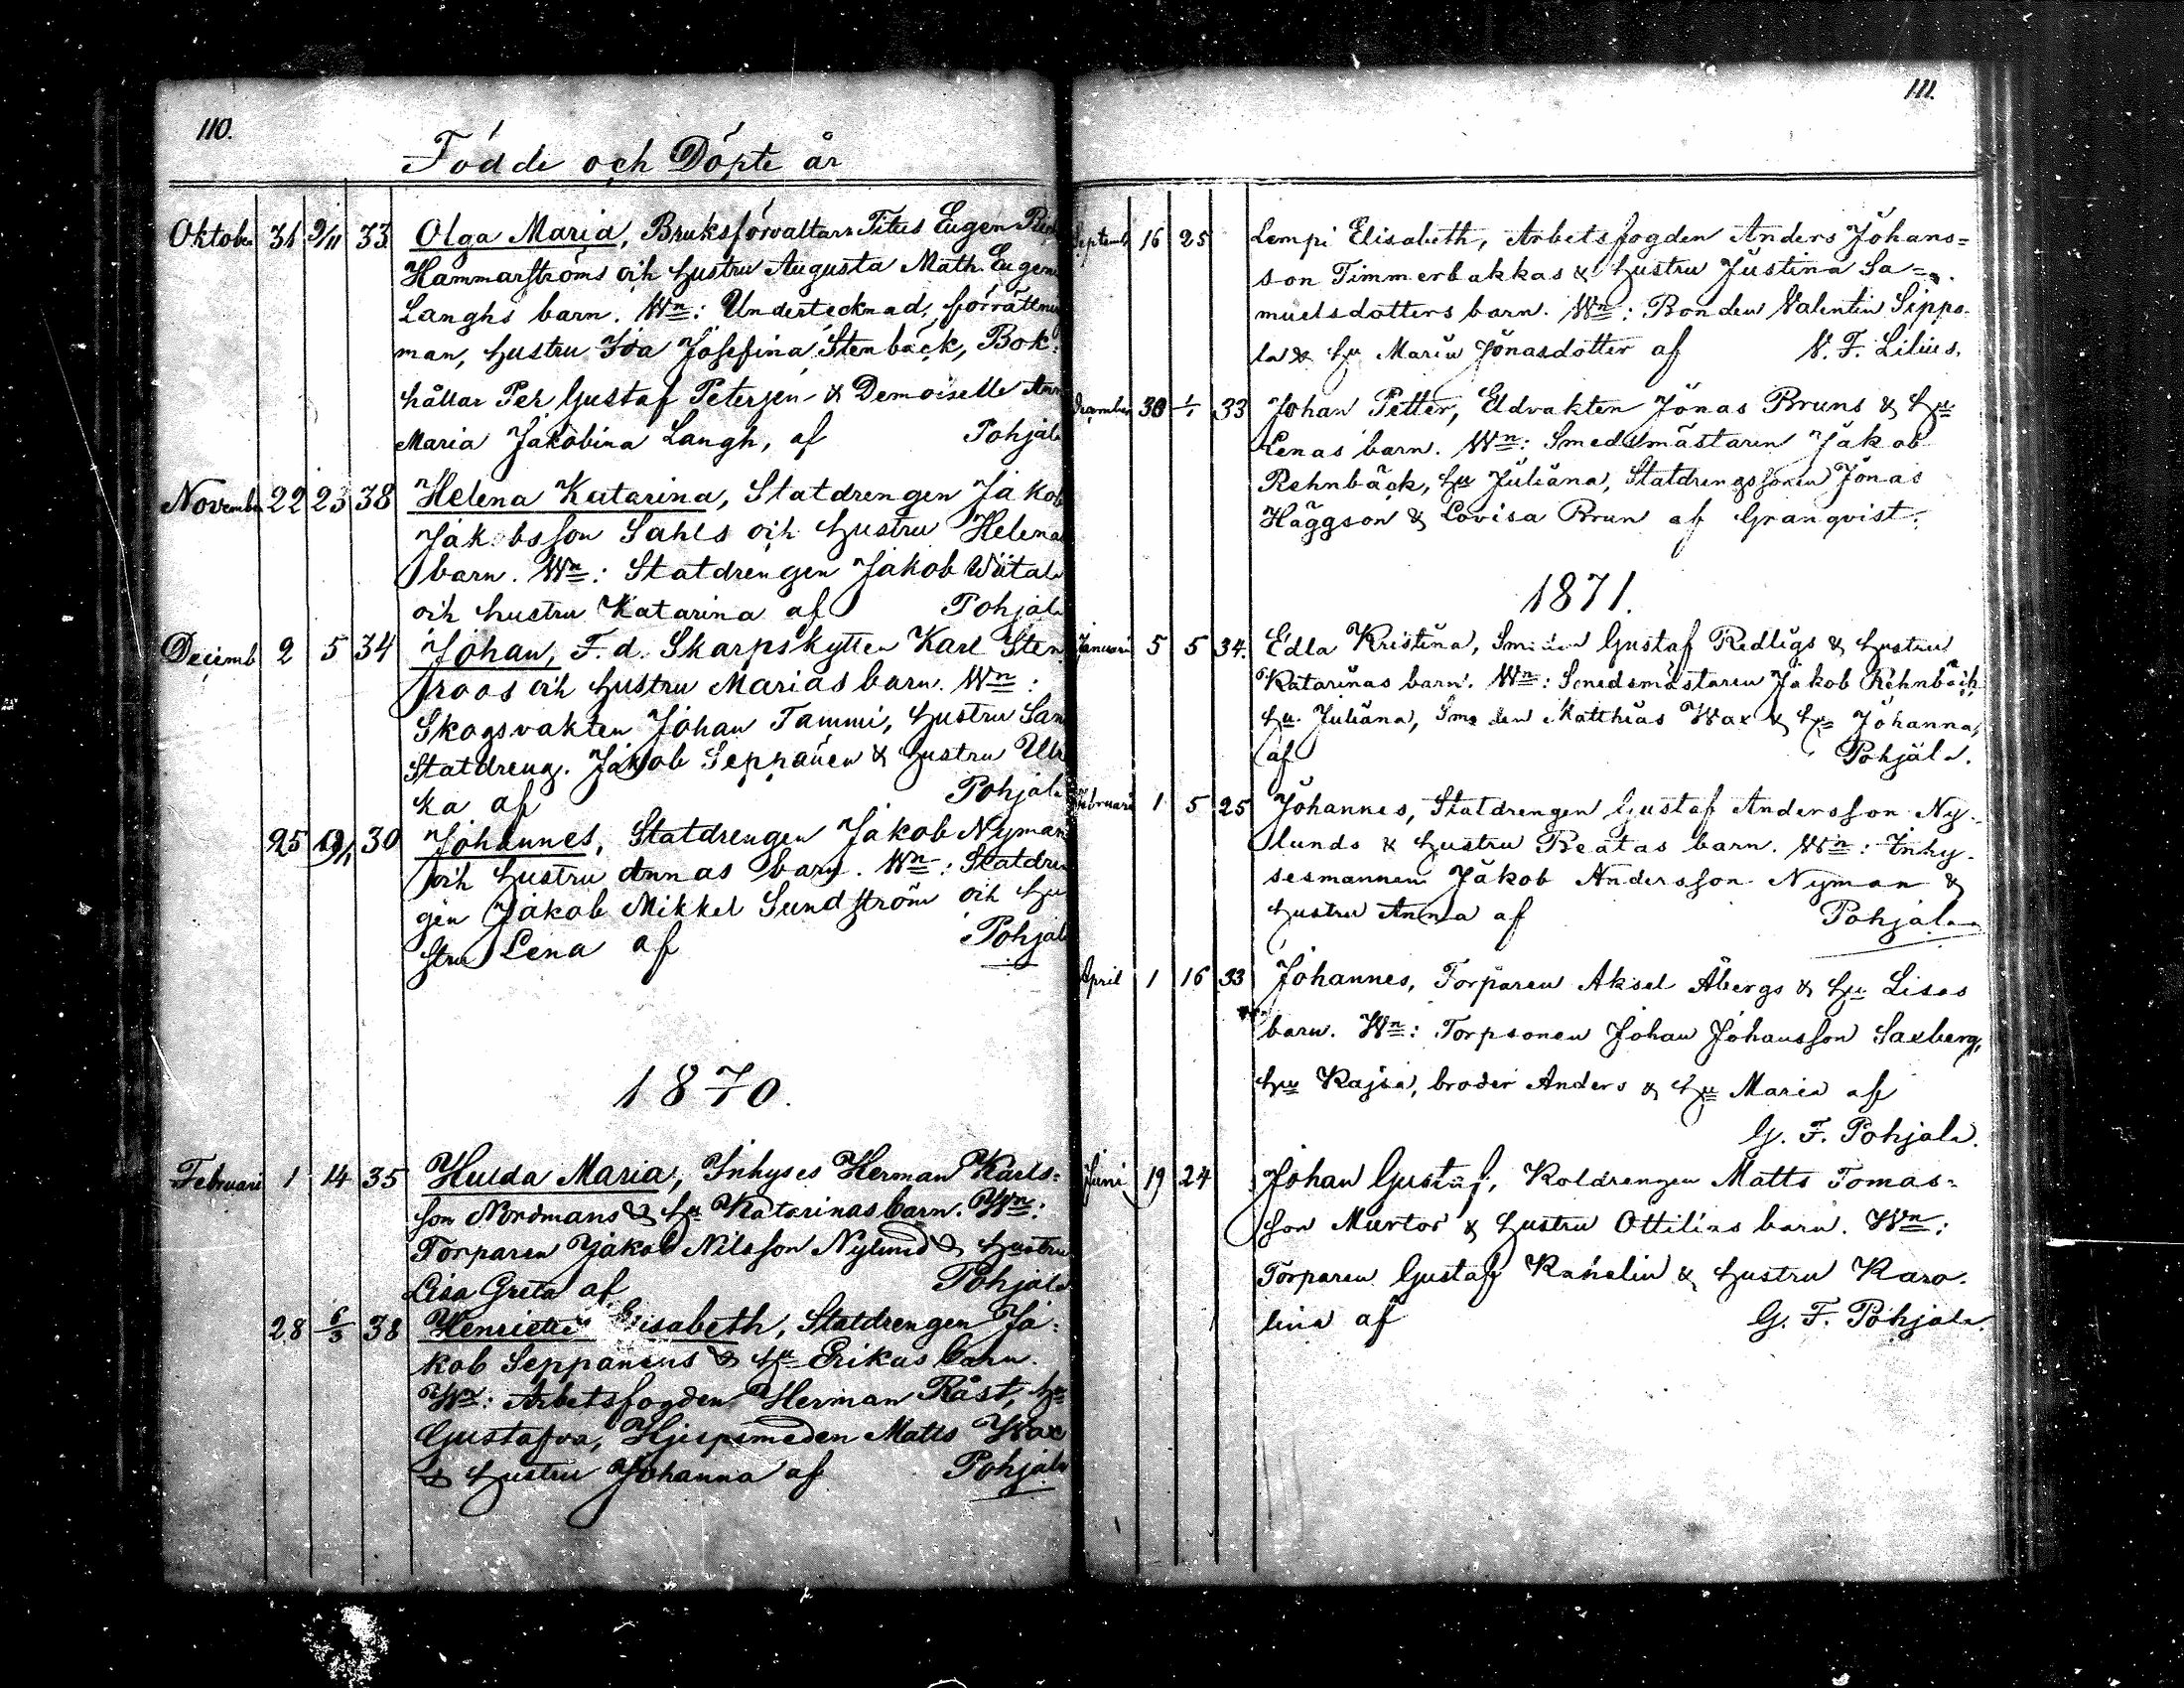 110.
Födde och Döpte år
Oktober 31 9/11 33 Olga Maria, Bruksförvaltarn Titus Eugen
Hammarströms och hustru Augusta Math. Eugen
Langhs barn. Wn: Undertecknad, förrättnings
man, hustru Ida Josefina Stenbäck, Bok-
hållar Per Gustaf Petersen & Demoiselle
Maria Jakobina Langh, af Pohjala
November 22 23 38 Helena Katarina, Statdrengen Jakob
Jakobsson Sahls och hustru Helenas
barn. Wn: Statdrengen Jakob Wiitala
och hustru Katarina af Pohjala
Decemb 2 5 34 Johan, F. d. Skarpskytten Karl Sten
roos och hustru Marias barn. Wn:
Skogsvakten Johan Tammi, hustru San
Statdreng. Jakob Seppänen & hustru Ulri
ka af Pohjala
25 19/1 30 Johannes, Statdrengen Jakob Nymans
och hustru Annas barn. Wn: Statdren
gen Jakob Mikkel Sundström och hu
stru Lena af Pohjala
1870.
Februari 1 14 35 Hulda Maria, Inhyses Herman Karls-
son Nordmans & hu Katarinas barn. Wn:
Torparen Jakob Nilsson Nylund & hustru
Lisa Greta af Pohjala
28 6/3 38 Henriette Elisabeth, Statdrengen Ja-
kob Seppänens & hu Erikas barn.
Wn: Arbetsfogden Herman Råst, hu
Gustafva, Hjelpsmeden Matts Wax
& hustru Johanna af Pohjala
111.
Septemb 16 25 Lempi Elisabeth, Arbetsfogden Anders Johans-
son Timmerbakkas & hustru Justina Sa-
muelsdotters barn. Wn: Bonden Valentin Sippo-
la & hu Maria Jonasdotter af N. F. Lilius.
December 30 1/1 33 Johan Petter, Eldvakten Jonas Bruns & hu
Lenas barn. Wn: Smedsmästaren Jakob
Rehnbäck, hu Juliana, Statdrengssonen Jonas
Häggson & Lovisa Brun af Granqvist.
1871.
Januari 5 5 34. Edla Kristina, Smeden Gustaf Redligs & hustru
Katarinas barn. Wn: Smedsmästaren Jakob Rehnbäck,
hu Juliana, Smeden Matthias Wax & hu Johanna,
af Pohjala.
Februari 1 5 25 Johannes, Statdrengen Gustaf Andersson Ny-
lunds & hustru Beatas barn. Wn: Inhy-
sesmannen Jakob Andersson Nyman &
hustru Anna af Pohjala
April 1 16 33 Johannes, Torparen Aksel Åbergs & hu Lisas
barn. Wn: Torpsonen Johan Johansson Saxberg,
hu Kajsa, broder Anders & hu Maria af
G. F. Pohjala.
Juni 19 24 Johan Gustaf, Koldrengen Matts Tomas-
son Murtos & hustru Ottilias barn. Wn:
Torparen Gustaf Kahelin & hustru Karo-
lina af G. F. Pohjala.